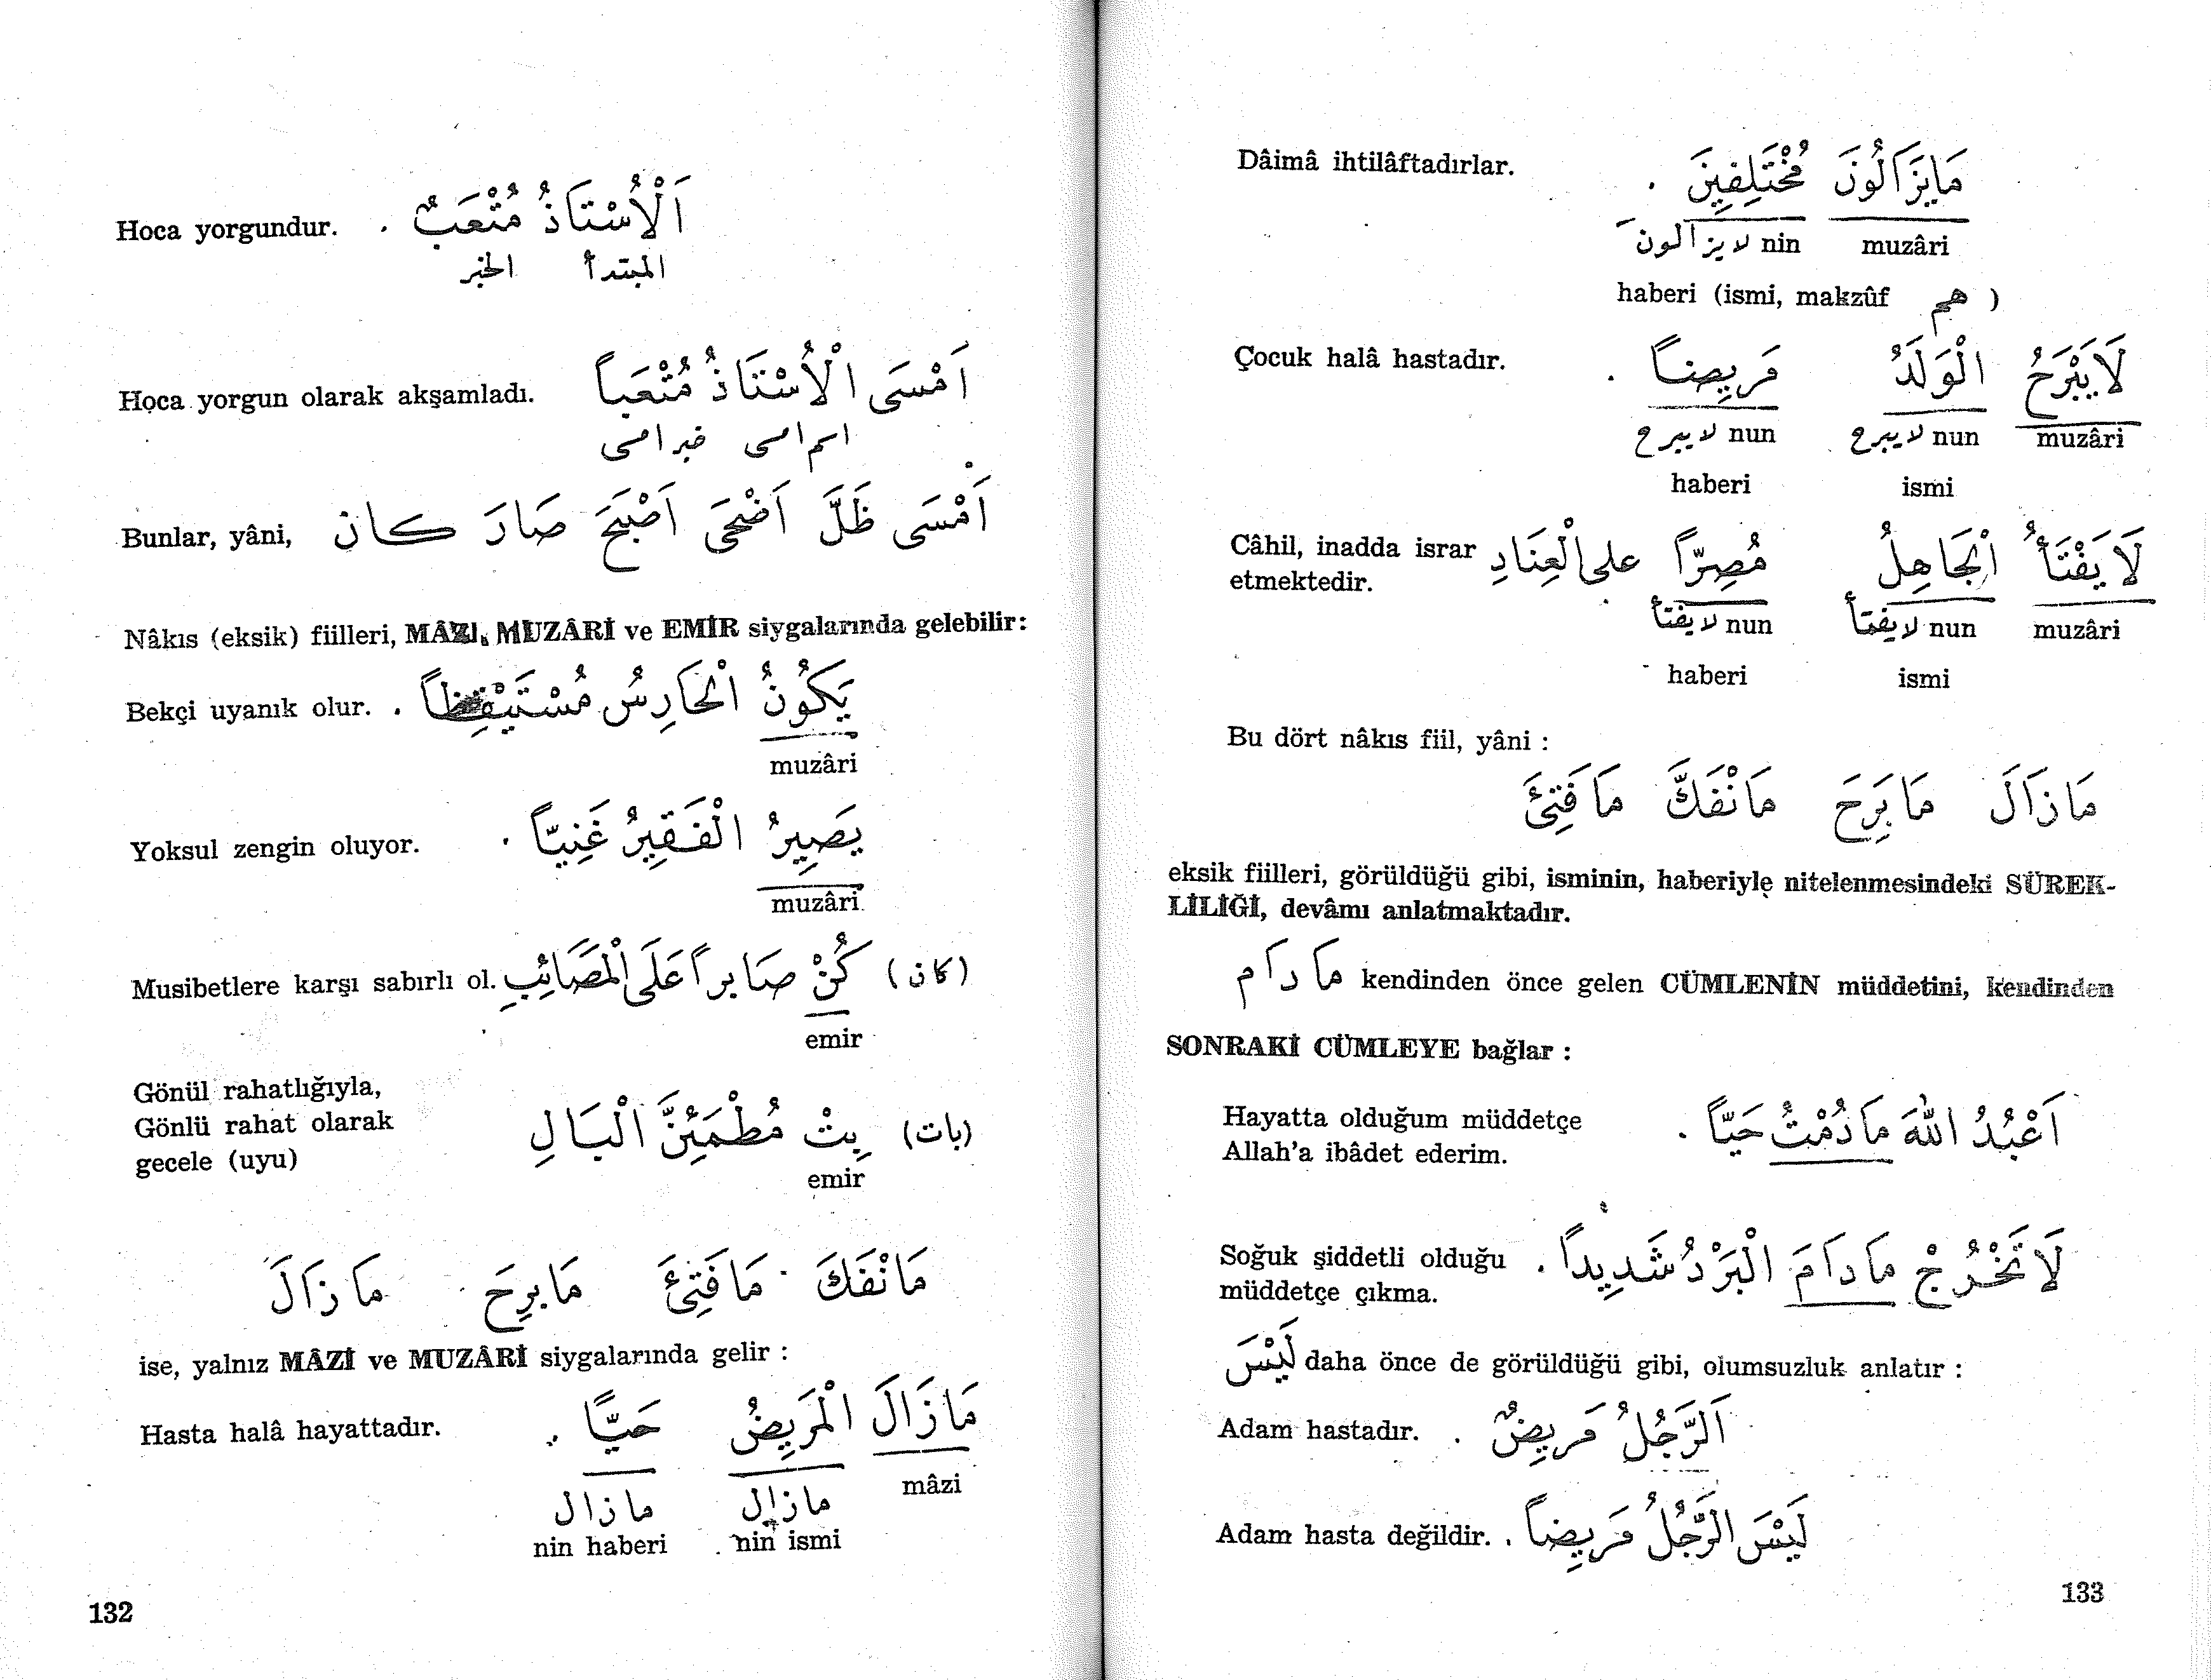 Hoca yorgundur. اَلْاُسْتَاذُ مُتْعَبٌ .
المبتدأ الخبر
Hoca yorgun olarak akşamladı. اَمْسَى الْاُسْتَاذُ مُتْعَباً
اسم امسى خبر امسى
Bunlar, yâni, اَمْسَى ظَلَّ اَضْحَى اَصْبَحَ صَارَ كان
Nâkıs (eksik) fiilleri, MÂZİ, MUZÂRİ ve EMİR siygalarında gelebilir:
Bekçi uyanık olur. . يَكُونُ الْحَارِسُ مُسْتَيْقِظاً
muzâri
Yoksul zengin oluyor. يَصِيرُ الْفَقِيرُ غَنِيّاً .
muzâri
Musibetlere karşı sabırlı ol. (كان) كُنْ صَابِراً عَلَى الْمَصَائِبِ
emir
Gönül rahatlığıyla,
Gönlü rahat olarak
gecele (uyu) (بات) بِتْ مُطْمَئِنَّ الْبَالِ
emir
مَانْفَكَ مَا فَتِئَ مَا بِرَحَ مَا زَالَ
ise, yalnız MÂZİ ve MUZÂRİ siygalarında gelir :
Hasta halâ hayattadır. مَازَالَ الْمَرِيضُ حَيّاً .
mâzi
مازال مازال
nin ismi nin haberi
132
Dâimâ ihtilâftadırlar. مَايَزَالُونَ مُخْتَلِفِينَ .
muzâri لا يزالون nin
haberi (ismi, makzûf هم )
Çocuk halâ hastadır. لَايَبْرَحُ الْوَلَدُ مَرِيضاً .
muzâri لا يبرح nun لا يبرح nun
ismi haberi
Câhil, inadda israr لَايَفْتَأُ الْجَاهِلُ مُصِرّاً على الْعِنَادِ
etmektedir.
muzâri لا يفتأ nun لا يفتأ nun
ismi haberi
Bu dört nâkıs fiil, yâni :
مَا زَالَ مَا بَرِحَ مَانْفَكَّ مَا فَتِئَ
eksik fiilleri, görüldüğü gibi, isminin, haberiyle nitelenmesindeki SÜREK-
LİLİĞİ, devâmı anlatmaktadır.
مَا دَام kendinden önce gelen CÜMLENİN müddetini, kendinden
SONRAKİ CÜMLEYE bağlar :
Hayatta olduğum müddetçe اَعْبُدُ اللهَ مَادُمْتُ حَيّاً .
Allah'a ibâdet ederim.
Soğuk şiddetli olduğu لَا تَخْرُجْ مَادَامَ الْبَرْدُ شَدِيداً .
müddetçe çıkma.
لَيْسَ daha önce de görüldüğü gibi, olumsuzluk anlatır :
Adam hastadır. اَلرَّجُلُ مَرِيضٌ .
Adam hasta değildir. لَيْسَ الرَّجُلُ مَرِيضاً .
133